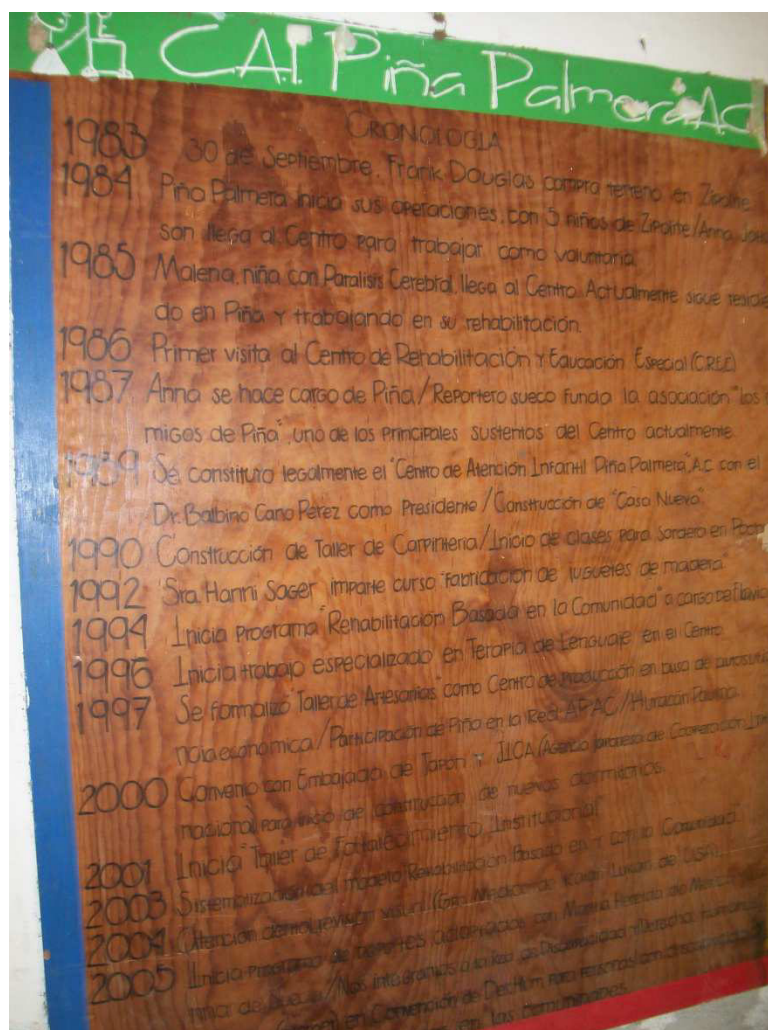 C.A.I. Piña Palmera A.C.
CRONOLOGIA
1983 30 de Septiembre, Frank Douglas compra terreno en Zipolite
1984 Piña Palmera inicia sus operaciones, con 5 niños de Zipolite/Anna
son llega al Centro para trabajar como voluntaria.
1985 Malena, niña con Paralisis Cerebral, llega al Centro. Actualmente sigue
do en Piña y trabajando en su rehabilitación.
1986 Primer visita al Centro de Rehabilitación y Educación Especial (C.R.E.E.)
1987 Anna se hace cargo de Piña/Reportero sueco funda la asociación "los
migos de Piña", uno de los principales sustentos del Centro actualmente.
1989 Se constituyo legalmente el "Centro de Atención Infantil Piña Palmera", A.C. con el
Dr. Balbino Cano Pérez como Presidente/Construcción de "Casa Nueva".
1990 Construcción de Taller de Carpinteria/Inicio de clases para sordera en
1992 Sra. Hanni Sager imparte curso "fabricación de juguetes de madera"
1994 Inicia programa "Rehabilitación Basada en la Comunidad" a cargo de Flavia
1996 Inicia trabajo especializado en Terapia de Lenguaje en el Centro
1997 Se formalizó "Taller de Artesanías" como Centro de Producción en busca de
ncia económica/Participación de Piña en la Red APAC/Huracán Paulina.
2000 Convenio con Embajada de Japón y JICA (Agencia japonesa de Cooperación
nacional) para inicio de construcción de nuevos dormitorios.
2001 Inicia "Taller de Fortalecimiento Institucional"
2003 Sistematización del modelo Rehabilitación Basada en y con la Comunidad.
2004 Atención de
2005 Inicia programa de deportes adaptados con
Nos integramos a la Red de Discapacidad y Derechos humanos
en Convención de para personas con
en las comunidades.